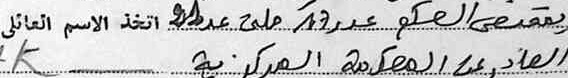 بمقتضى الحكم عدد 17 ملف عدد اتخذ الاسم العائلي
الصادر عن المحكمة المركزية